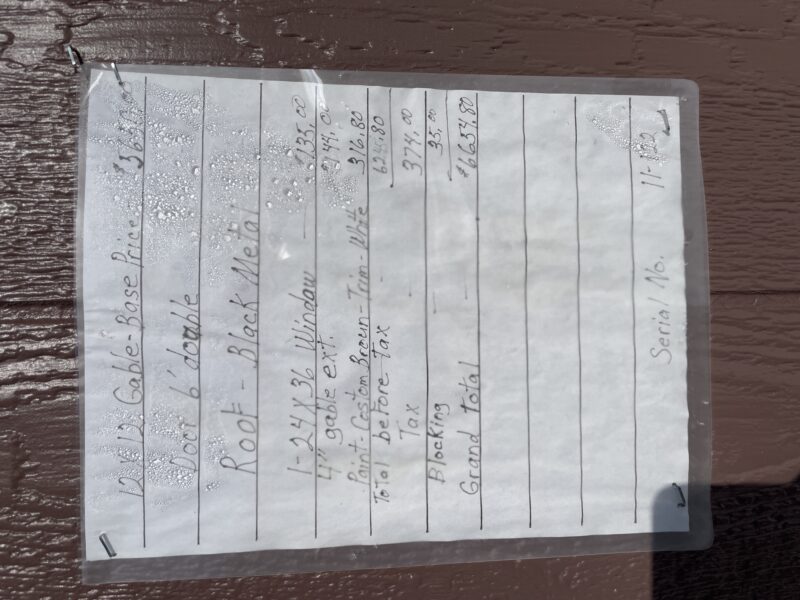 12x12 Gable-Base Price $5650.00
Door 6' double
Roof - Black Metal
1-24x36 Window - $135.00
4" gable ext. $144.00
Paint-Costom Brown-Trim-White 316.80
Total before Tax - 6245.80
Tax - 374.00
Blocking - 35.00
Grand total - $6654.80
Serial No.